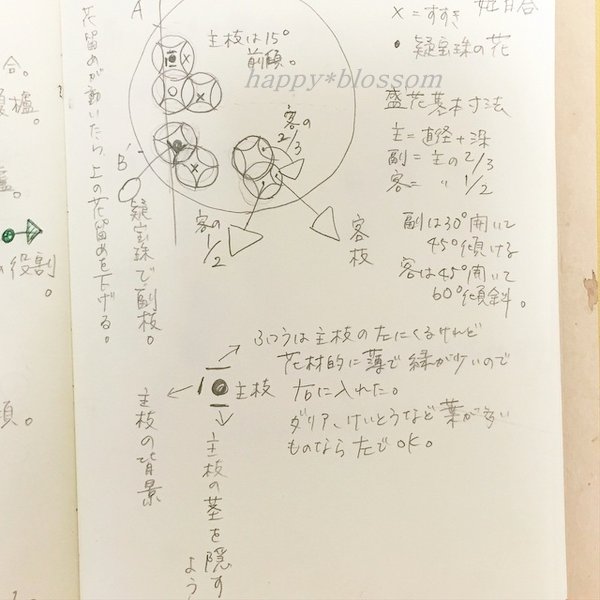 A
主枝は15°
前傾。
happy*blossom
×=すすき
姫百合
・疑宝珠の花
盛花基本寸法
主=直径+深
副=主の2/3
客= 〃 1/2
副は30°開いて
45°傾ける
客は45°開いて
60°傾斜。
客の
2/3
B'
客の
1/2
客枝
疑宝珠で副枝。
花留めが動いたら、上の花留めを下げる。
合。
の役割
ふつうは主枝の左にくるけれど
花材的に薄で緑が少いので
右に入れた。
ダリア、けいとうなど葉が多い
ものなら左でOK。
主枝
主枝の背景
主枝の茎を隠す
よう